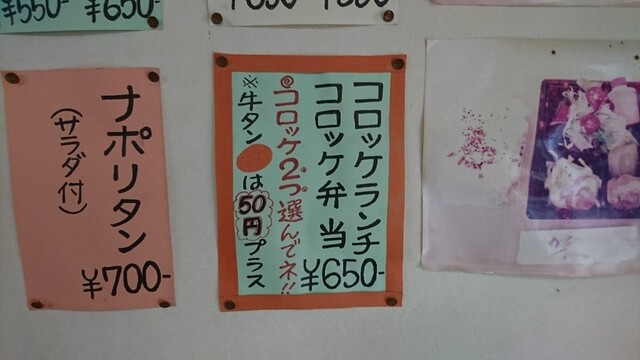 ¥550- ¥650-
ナポリタン
(サラダ付)
¥700-
コロッケランチ
コロッケ弁当
¥650-
コロッケ2つ選んでネ!!
※牛タンは50円プラス